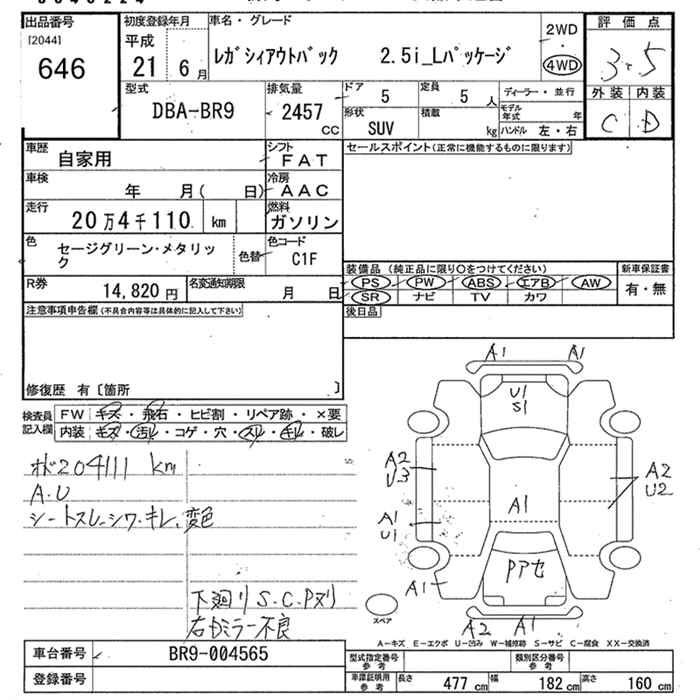 出品番号
[2044]
646
初度登録年月
平成
21 6月
車名・グレード
レガシィアウトバック 2.5i_Lパッケージ
2WD
・
4WD
評価点
3.5
外装 内装
C D
型式
DBA-BR9
排気量
2457
CC
ドア 5
定員 5人
形状 SUV
積載 kg
ディーラー・並行
モデル年式 年
ハンドル 左・右
車歴 自家用
シフト FAT
車検 年 月( 日)
冷房 AAC
走行 20万4千110 km
燃料 ガソリン
色 セージグリーン・メタリック
色替
色コード C1F
R券 14,820円
名変通知期限 月 日
セールスポイント(正常に機能するものに限ります)
装備品 (純正品に限り〇をつけてください)
PS PW ABS エアB AW
SR ナビ TV カワ
新車保証書
有・無
後日品
注意事項申告欄(不具合内容等は具体的に記入して下さい)
修復歴 有〔箇所 〕
検査員記入欄
FW キズ・飛石・ヒビ割・リペア跡・×要
内装 キズ・汚れ・コゲ・穴・スレ・キレ・破レ
メーター204111 km
A.U
シートスレ、シワ、キレ、変色
下廻りS.C.Pヌリ
右ドアミラー不良
A1 A1
U1
S1
A2
U3
A2
U2
A1
A1
U1
A1
Pアセ
A2 A1
スペア
A-キズ E-エクボ U-凹み W-補修跡 S-サビ C-腐食 XX-交換済
車台番号 BR9-004565
登録番号
型式指定番号
参考
類別区分番号
参考
車庫証明用
参考
長さ 477cm 幅 182cm 高さ 160cm